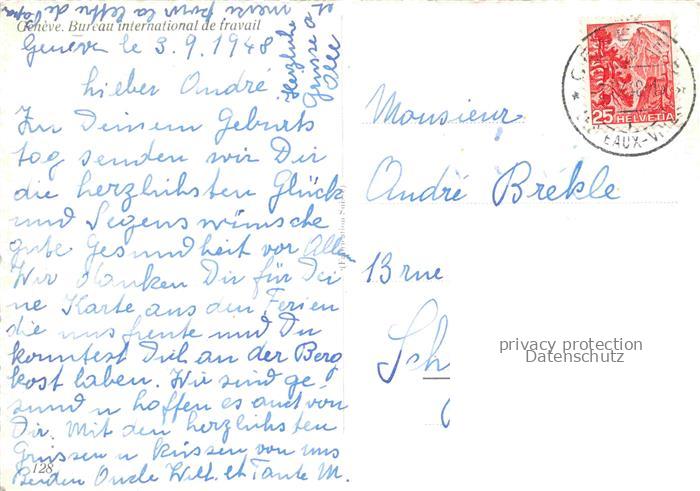 et
merci pour la lettre de Papa
Genève. Bureau international de travail
Geneve le 3.9.1948
Herzliche
Grüsse a
Alle
Lieber André
Zu Deinem Geburts
tag senden wir Dir
die herzlichsten Glück
und Segenswünsche
gute Gesundheit vor Allem
Wir danken Dir für Dei
ne Karte aus den Ferien
die uns freute und Du
konntest Dich an der Berg
kost laben. Wir sind ge-
sund u hoffen es auch von
Dir. Mit den herzlichsten
Grüssen u küssen von uns
Beiden Oncle Willt. et Tante M.
128
Monsieur
André Brékle
13 rue
Sch
privacy protection
Datenschutz
25 HELVETIA